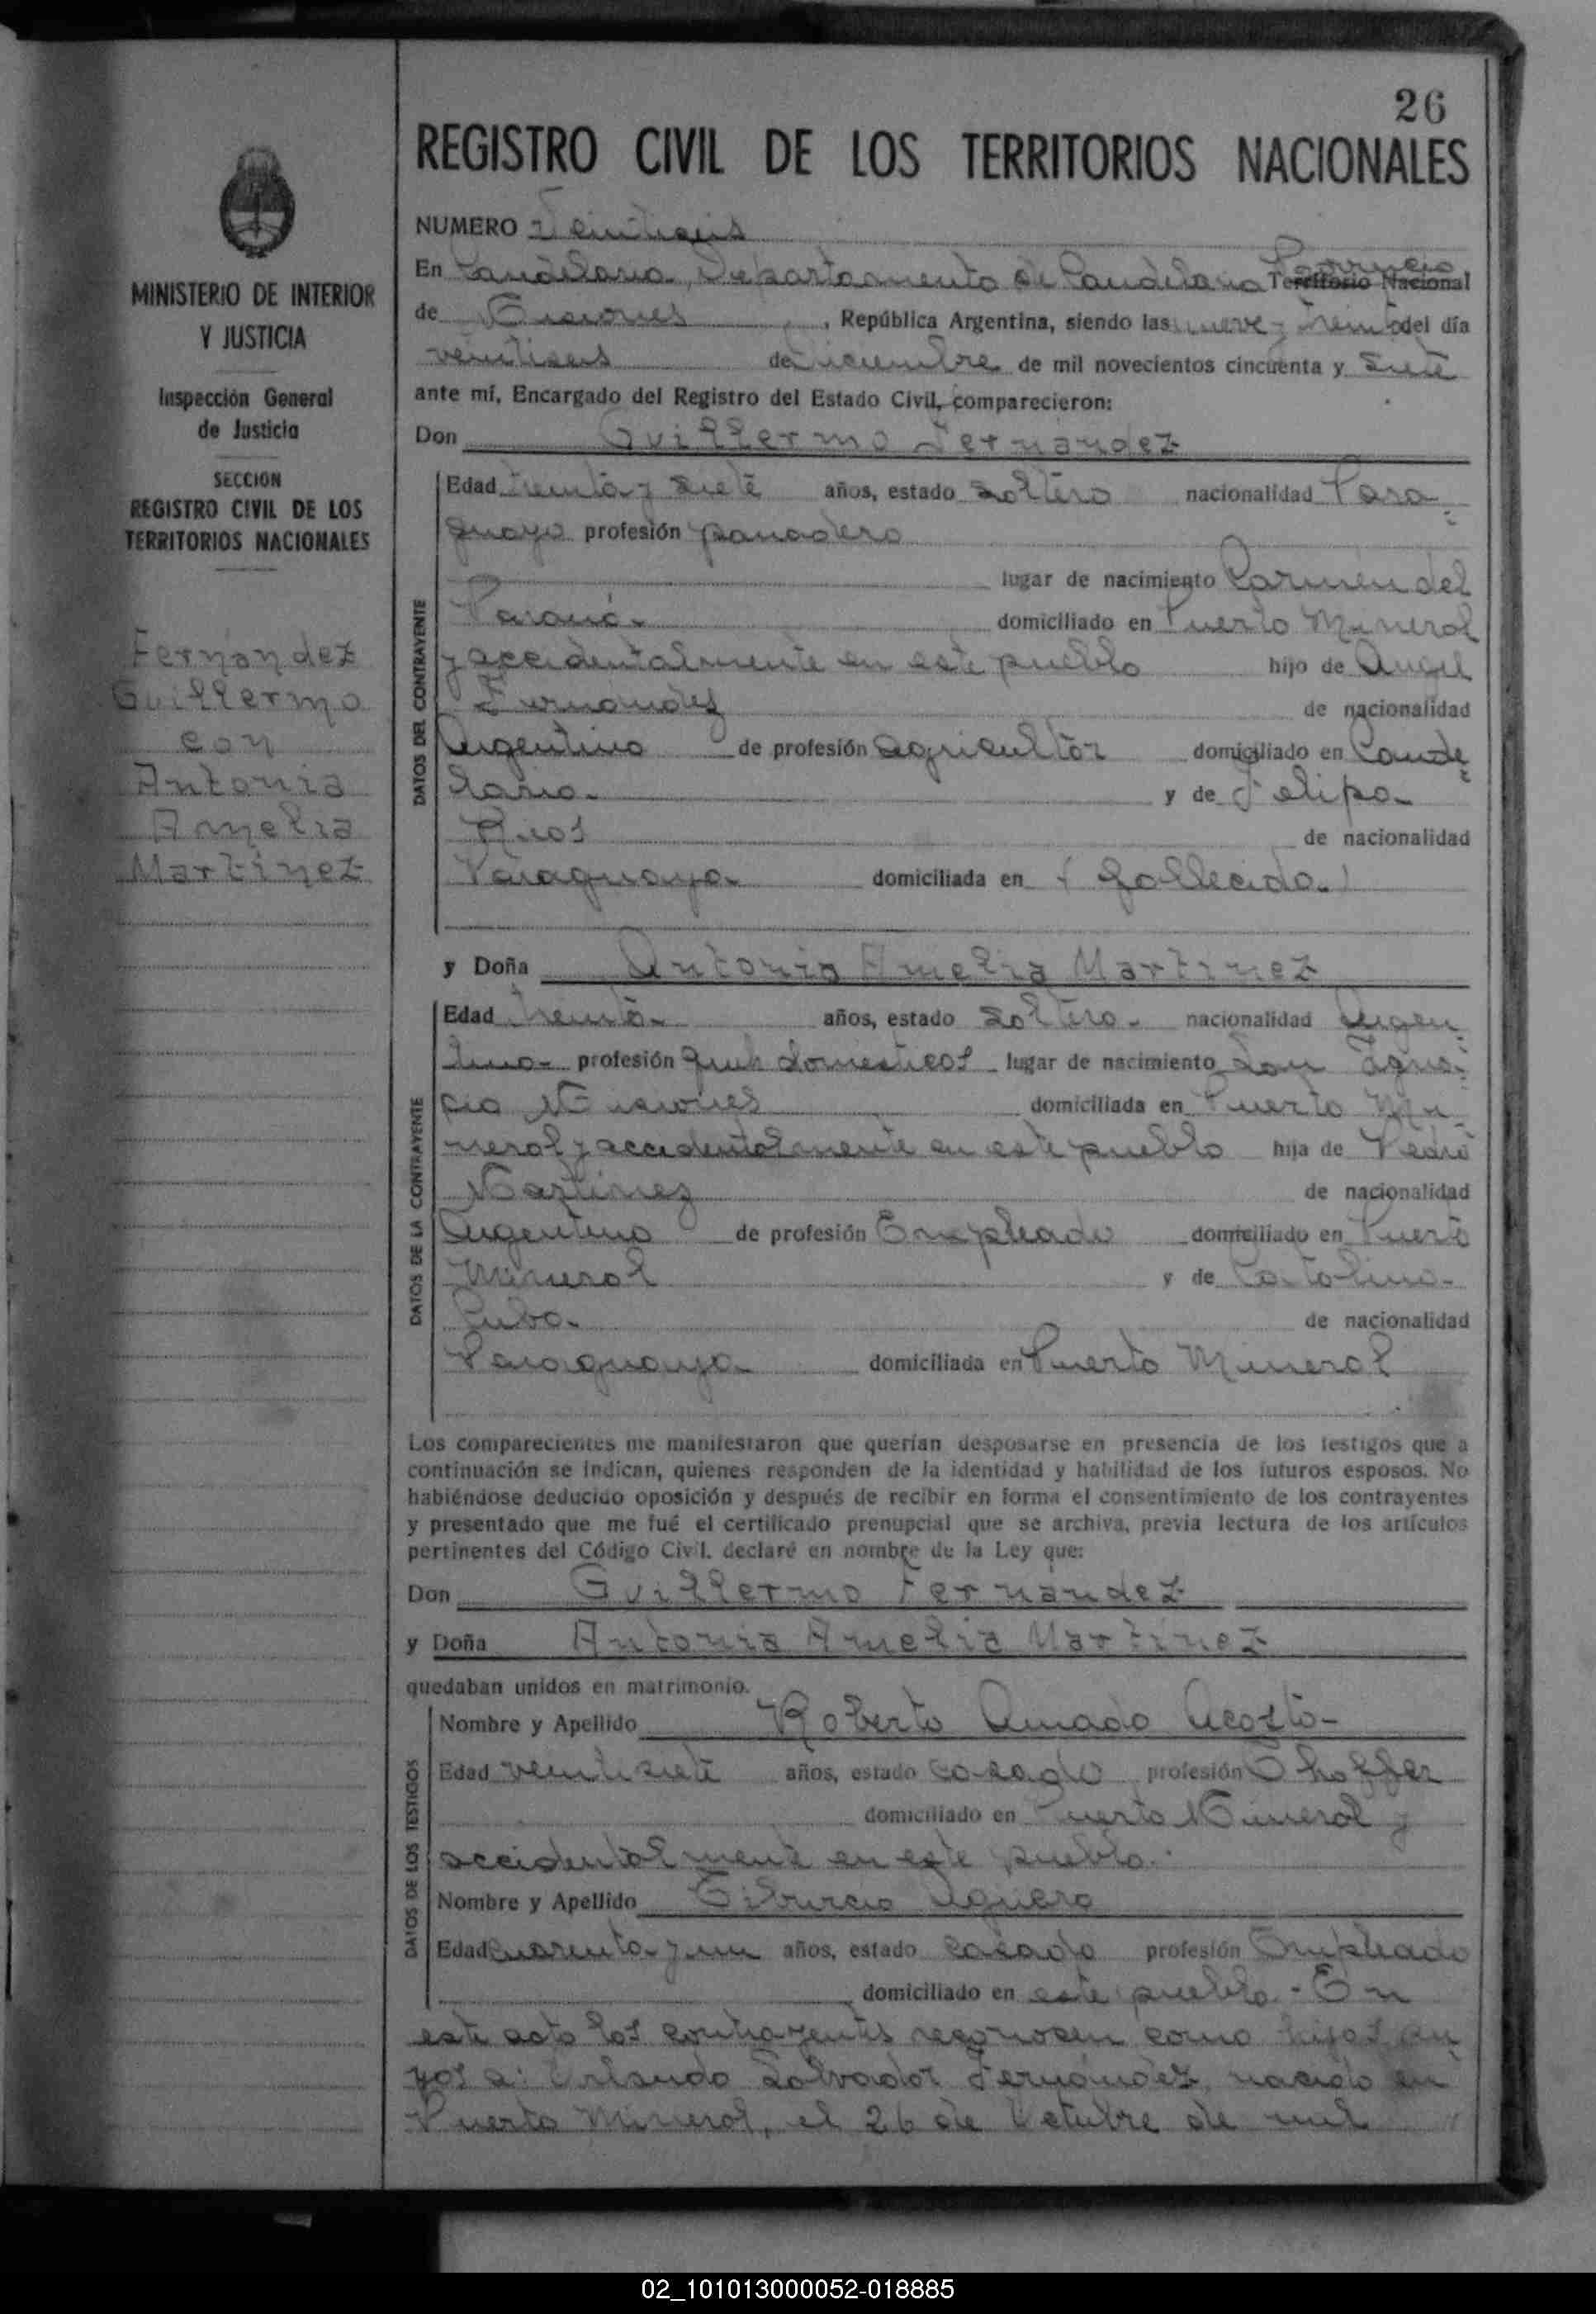 26
REGISTRO CIVIL DE LOS TERRITORIOS NACIONALES
MINISTERIO DE INTERIOR
Y JUSTICIA
Inspección General
de Justicia
SECCION
REGISTRO CIVIL DE LOS
TERRITORIOS NACIONALES
Fernández
Guillermo
con
Antonia
Amelia
Martínez
NUMERO Veintiseis
En Candelaria, Departamento de Candelaria Provincia Territorio Nacional
de Misiones, República Argentina, siendo las nueve y treinta del día
veintiseis de Diciembre de mil novecientos cincuenta y siete
ante mí, Encargado del Registro del Estado Civil, comparecieron:
Don Guillermo Fernández
DATOS DEL CONTRAYENTE
Edad treinta y siete años, estado soltero nacionalidad Para-
guaya profesión panadero
lugar de nacimiento Carmen del
Paraná- domiciliado en Puerto Mineral
y accidentalmente en este pueblo hijo de Angel
Fernández de nacionalidad
Argentino de profesión agricultor domiciliado en Cande-
laria- y de Felipa-
Rios de nacionalidad
Paraguaya- domiciliada en (fallecida-)
y Doña Antonia Amelia Martínez
DATOS DE LA CONTRAYENTE
Edad treinta- años, estado soltera- nacionalidad Argen-
tina- profesión queh domesticos lugar de nacimiento San Igna-
cio Misiones domiciliada en Puerto Mi-
neral y accidentalmente en este pueblo hija de Pedro
Martinez de nacionalidad
Argentino de profesión Empleado domiciliado en Puerto
Mineral y de Catalina-
de nacionalidad
Paraguaya- domiciliada en Puerto Mineral
Los comparecientes me manifestaron que querían desposarse en presencia de los testigos que a
continuación se indican, quienes responden de la identidad y habilidad de los futuros esposos. No
habiéndose deducido oposición y después de recibir en forma el consentimiento de los contrayentes
y presentado que me fué el certificado prenupcial que se archiva, previa lectura de los artículos
pertinentes del Código Civil. declaré en nombre de la Ley que:
Don Guillermo Fernández
y Doña Antonia Amelia Martínez
quedaban unidos en matrimonio.
DATOS DE LOS TESTIGOS
Nombre y Apellido Roberto Amado Acosta-
Edad veintisiete años, estado casado profesión Choffer
domiciliado en Puerto Mineral y
accidentalmente en este pueblo.
Nombre y Apellido Tiburcio Aguero
Edad cuarenta y un años, estado casado profesión Empleado
domiciliado en este pueblo - En
este acto los contrayentes reconocen como hijos su-
yos a: Orlando Salvador Fernández, nacido en
Puerto Mineral, el 26 de Octubre de mil
02_101013000052-018885